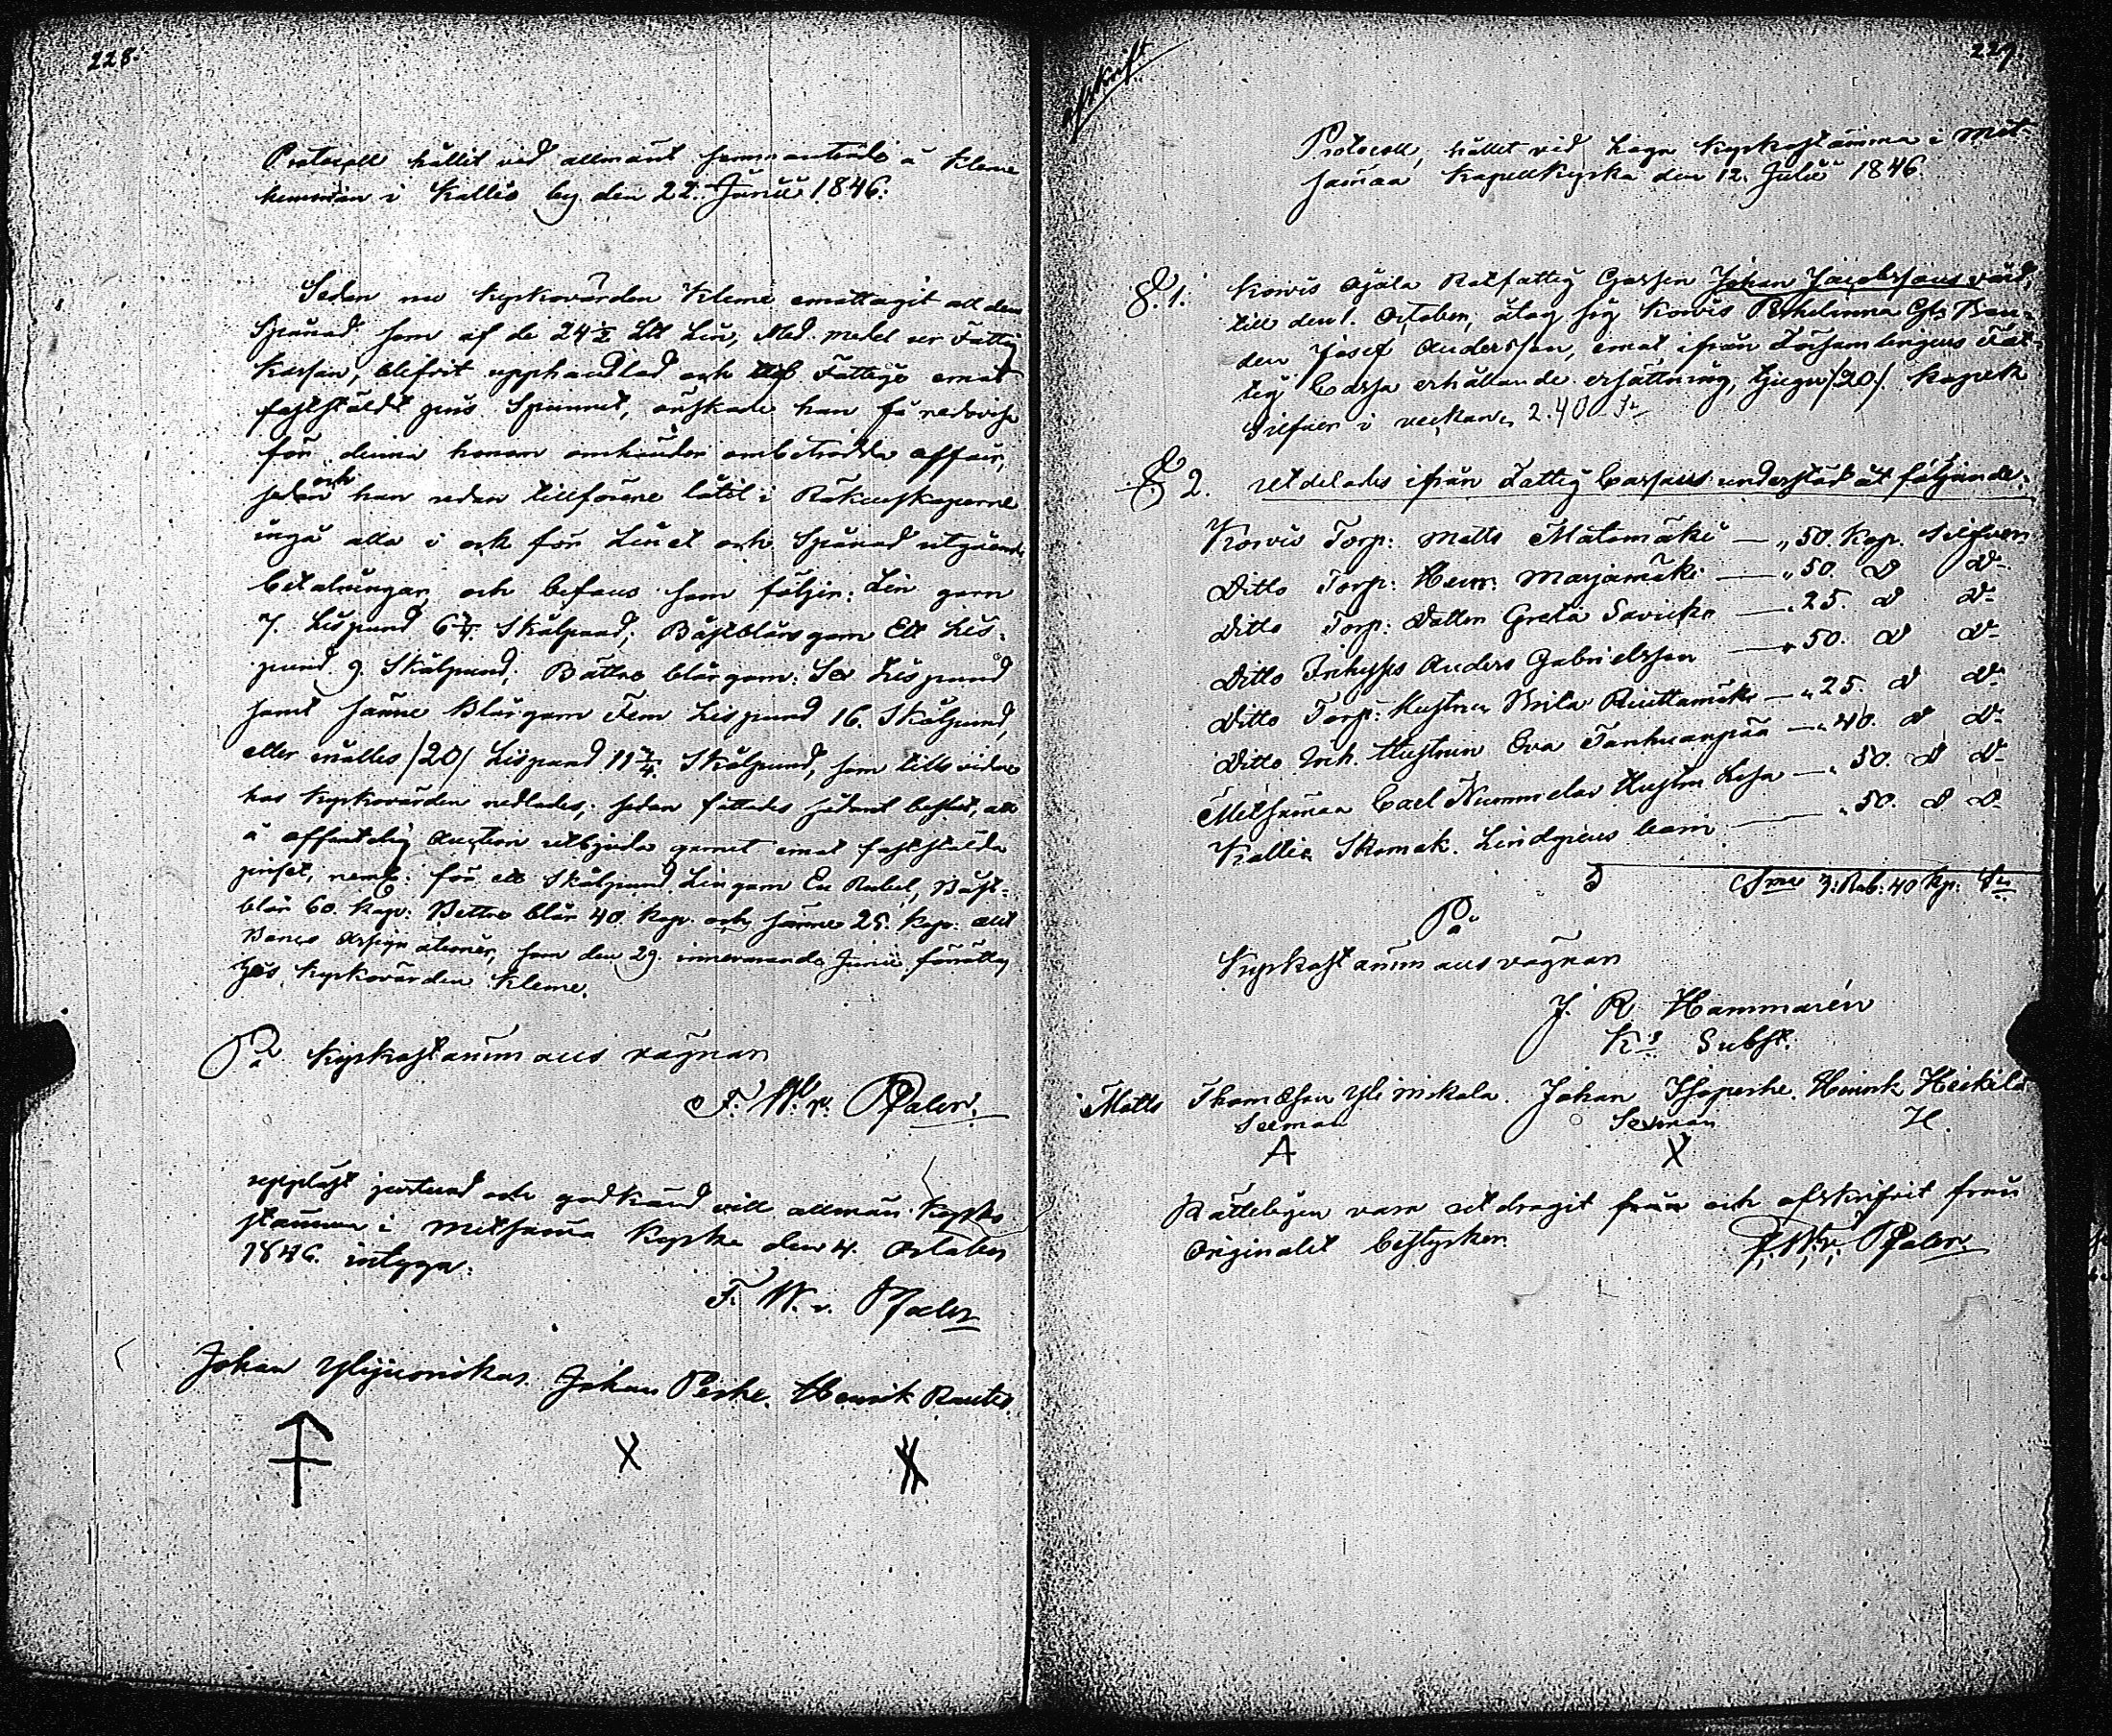 228.
Protocoll hållit vid allmänt sammanträde å Kleme
hemman i Kallio by den 22. Junii 1846.
Sedan nu Kyrkovärden Kleme emottagit all den
Spånad som af de 24½ LU Lin, Med medel ur Fattig
Kassan, blifvit upphandlad och Fattige emot
fastställdt pris Spunnet, önskade han få redovisa
för denna honom omhänder ombetrodda affair,
och
sedan han redan tillförene låtit i Räkenskaperne
ingå alla i och för Linet och Spånad utgående
betalningar, och befans som följer: Lin garn
7. Lispund 6¾ Skålpund; Bästblårsgarn Ett Lis-
pund 9. Skålpund; Bättre blårgarn: Sex Lispund
samt sämre Blårgarn Fem Lispund 16. Skålpund,
eller inalles /20/ Lispund 11¾ Skålpund, som tills vidare
hos Kyrkovärden nedlades; sedan fattades sådant beslut, att
å offentelig Auction utbjuda garnet emot fastställda
priset, neml: för ett Skålpund Lingarn En Rubel, Bäst-
blår 60. Kop: Bettre blår 40. Kop. och sämre 25. Kop. allt
Banco Assignationer, som den 29. innevarande Junii förrättas
hos Kyrkovärden Kleme.
På Kyrkostämmans vägnar
F. W. v. Pfaler.
uppläst justerad och godkänd vid allmän Kyrko
stämma i Metsämaa Kyrka den 4. October
1846. intyga.
F. W. v. Pfaler
Johan Ylijuonikas. Johan Peske. Henrik Rautio.
X
227
Afskrift
Protocoll, hållet vid laga Kyrkostämma i Met-
sämaa Kapellkyrka den 12. Julii 1846.
§. 1. Kowis Ojala Rotfattig Gossen Johan Jacobssons vård,
till den 1. October, åtog sig Kowis
den Josef Andersson, emot ifrån Församlingens Fat-
tig Cassa erhållande ersättning, tjugu /20/ Kopek
Silfver i veckan, 2.40 Sr
§ 2. Utdelades ifrån Fattig Cassans understöd åt följande:
Kowis Torp: Matts Mätämäki — „ 50. Kop. Silfver
Ditto Torp: Henr: Marjamäki — „ 50. D D-
Ditto Torp: Dottren Greta — „ 25. D D-
Ditto Inhyses Anders Gabrielsson — „ 50. D D-
Ditto Torp: Hustrun Brita — „ 25. D D-
Ditto Inh. Hustrun Eva Tanhuanpää — „ 40. D D-
Metsämaa Carl Nummelas Hustru Lisa — „ 50. D D-
Kallio Skomak. Lindgrens barn — „ 50. D D-
Sma 3: Rub: 40 Kp: Sr
På
Kyrkostämmans vägnar
J. R. Hammarén
Ks Subst.
Matts Thomasson Yli Nikala. Johan Isopeske. Henrik Heikilä
Sexman Sexman H.
A X
Rätteligen vara utdragit från och afskrifvit från
Originalet bestyrker.
F. W. v. Pfaler.